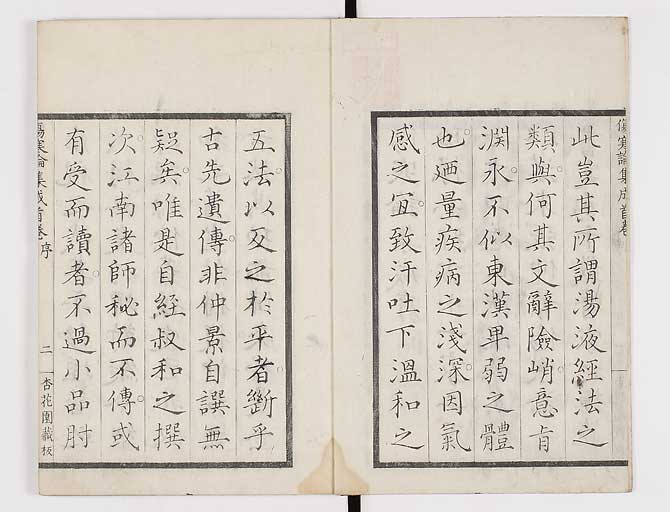 傷寒論集成首卷
此豈其所謂湯液經法之
類與何其文辭險峭意旨
淵永不似東漢卑弱之體
也廼量疾病之淺深因氣
感之宜致汗吐下溫和之
五法以反之於平者斷乎
古先遺傳非仲景自譔無
疑矣唯是自經叔和之撰
次江南諸師秘而不傳或
有受而讀者不過小品肘
傷寒論集成首卷 序 二 杏花園藏板